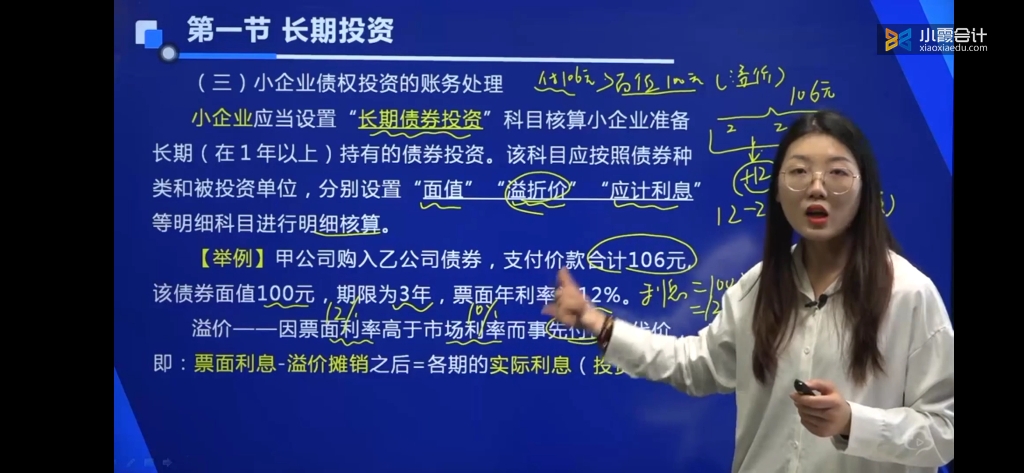 第一节 长期投资
小霞会计
xiaoxiaedu.com
（三）小企业债权投资的账务处理
付106元>面值100元（溢价）
106元
小企业应当设置“长期债券投资”科目核算小企业准备
2 2
长期（在1年以上）持有的债券投资。该科目应按照债券种
+12
类和被投资单位，分别设置“面值”“溢折价”“应计利息”
12-2
等明细科目进行明细核算。
【举例】甲公司购入乙公司债券，支付价款合计106元，
该债券面值100元，期限为3年，票面年利率 12%。
利息=100
=12
12% 10%
溢价——因票面利率高于市场利率而事先付 代价，
即：票面利息-溢价摊销之后=各期的实际利息（投